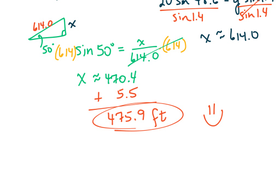 614.0 x
50°
(614) sin 50° = x/614.0 (614)
x ≈ 470.4
+ 5.5
475.9 ft
sin 1.4
sin 1.4
x ≈ 614.0